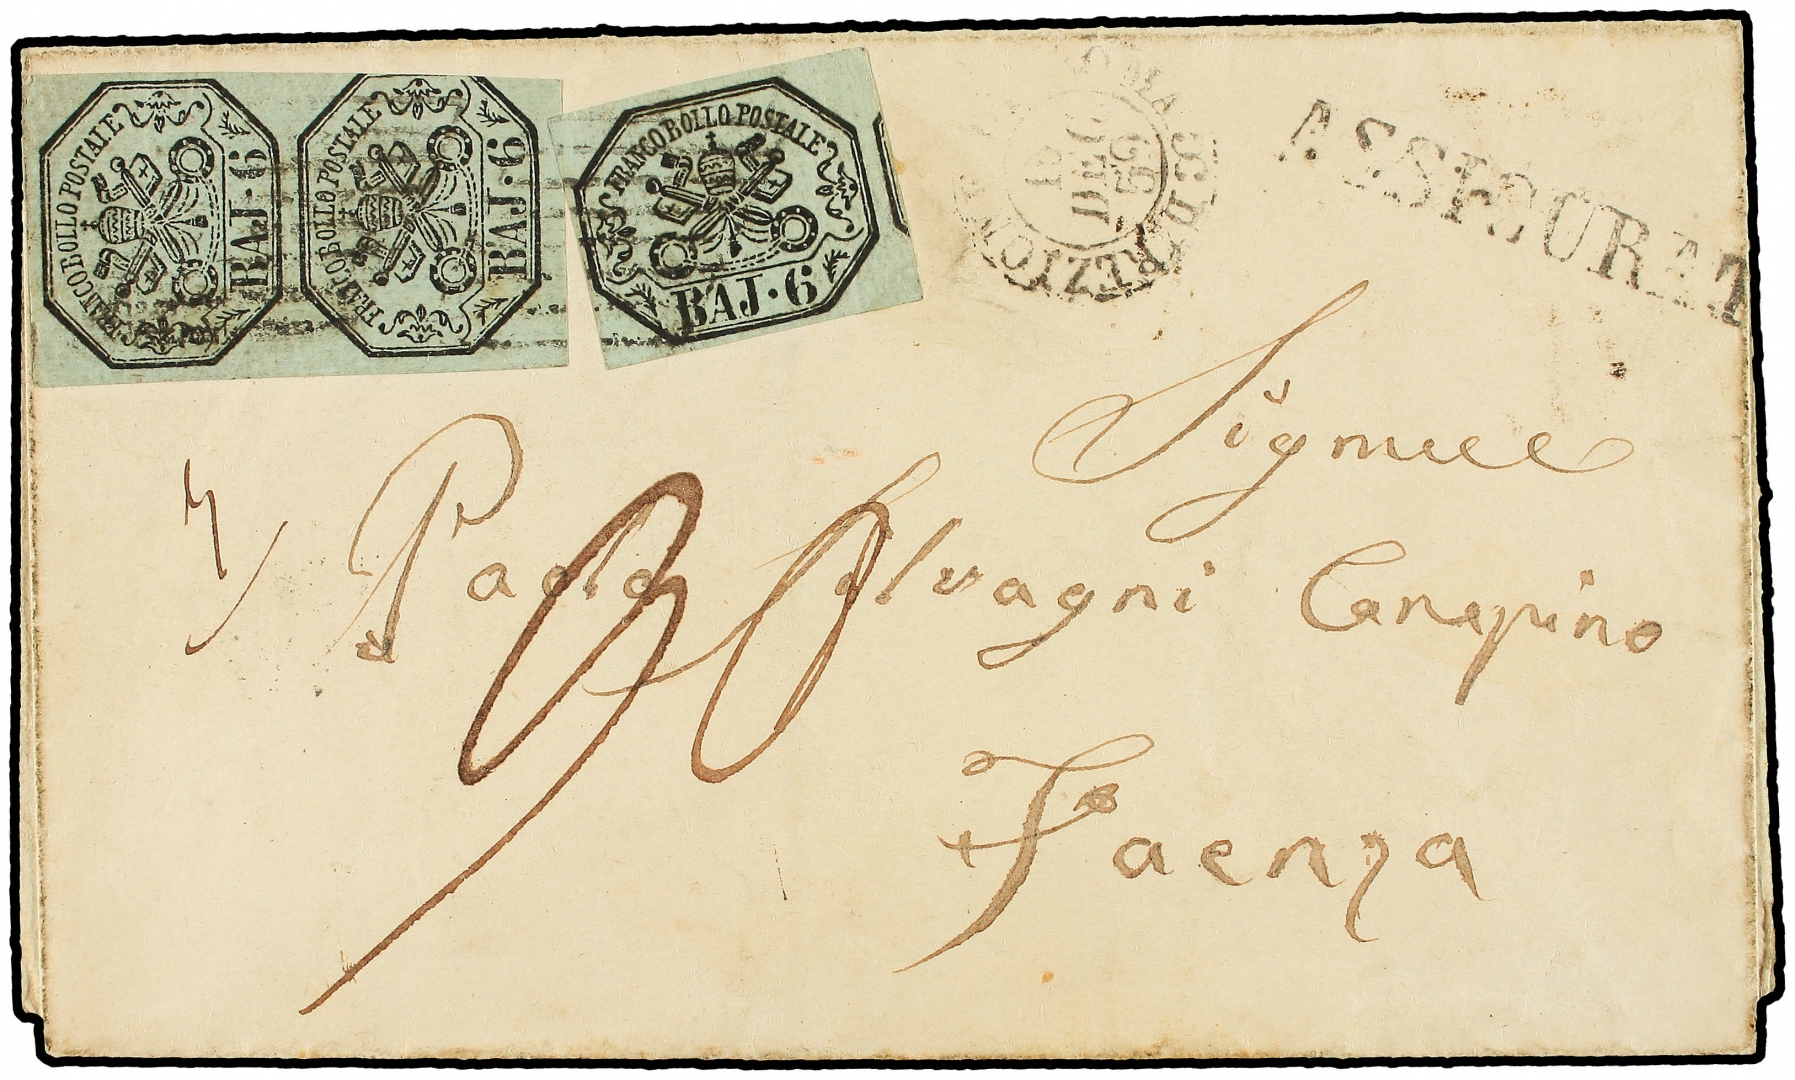 FRANCO BOLLO POSTALE
BAJ·6
FRANCO BOLLO POSTALE
BAJ·6
FRANCO BOLLO POSTALE
BAJ·6
ROMA
DIREZIONE DI
DEC
59
ASSICURAT
Paolo Salvagni Canapino
Faenza
90